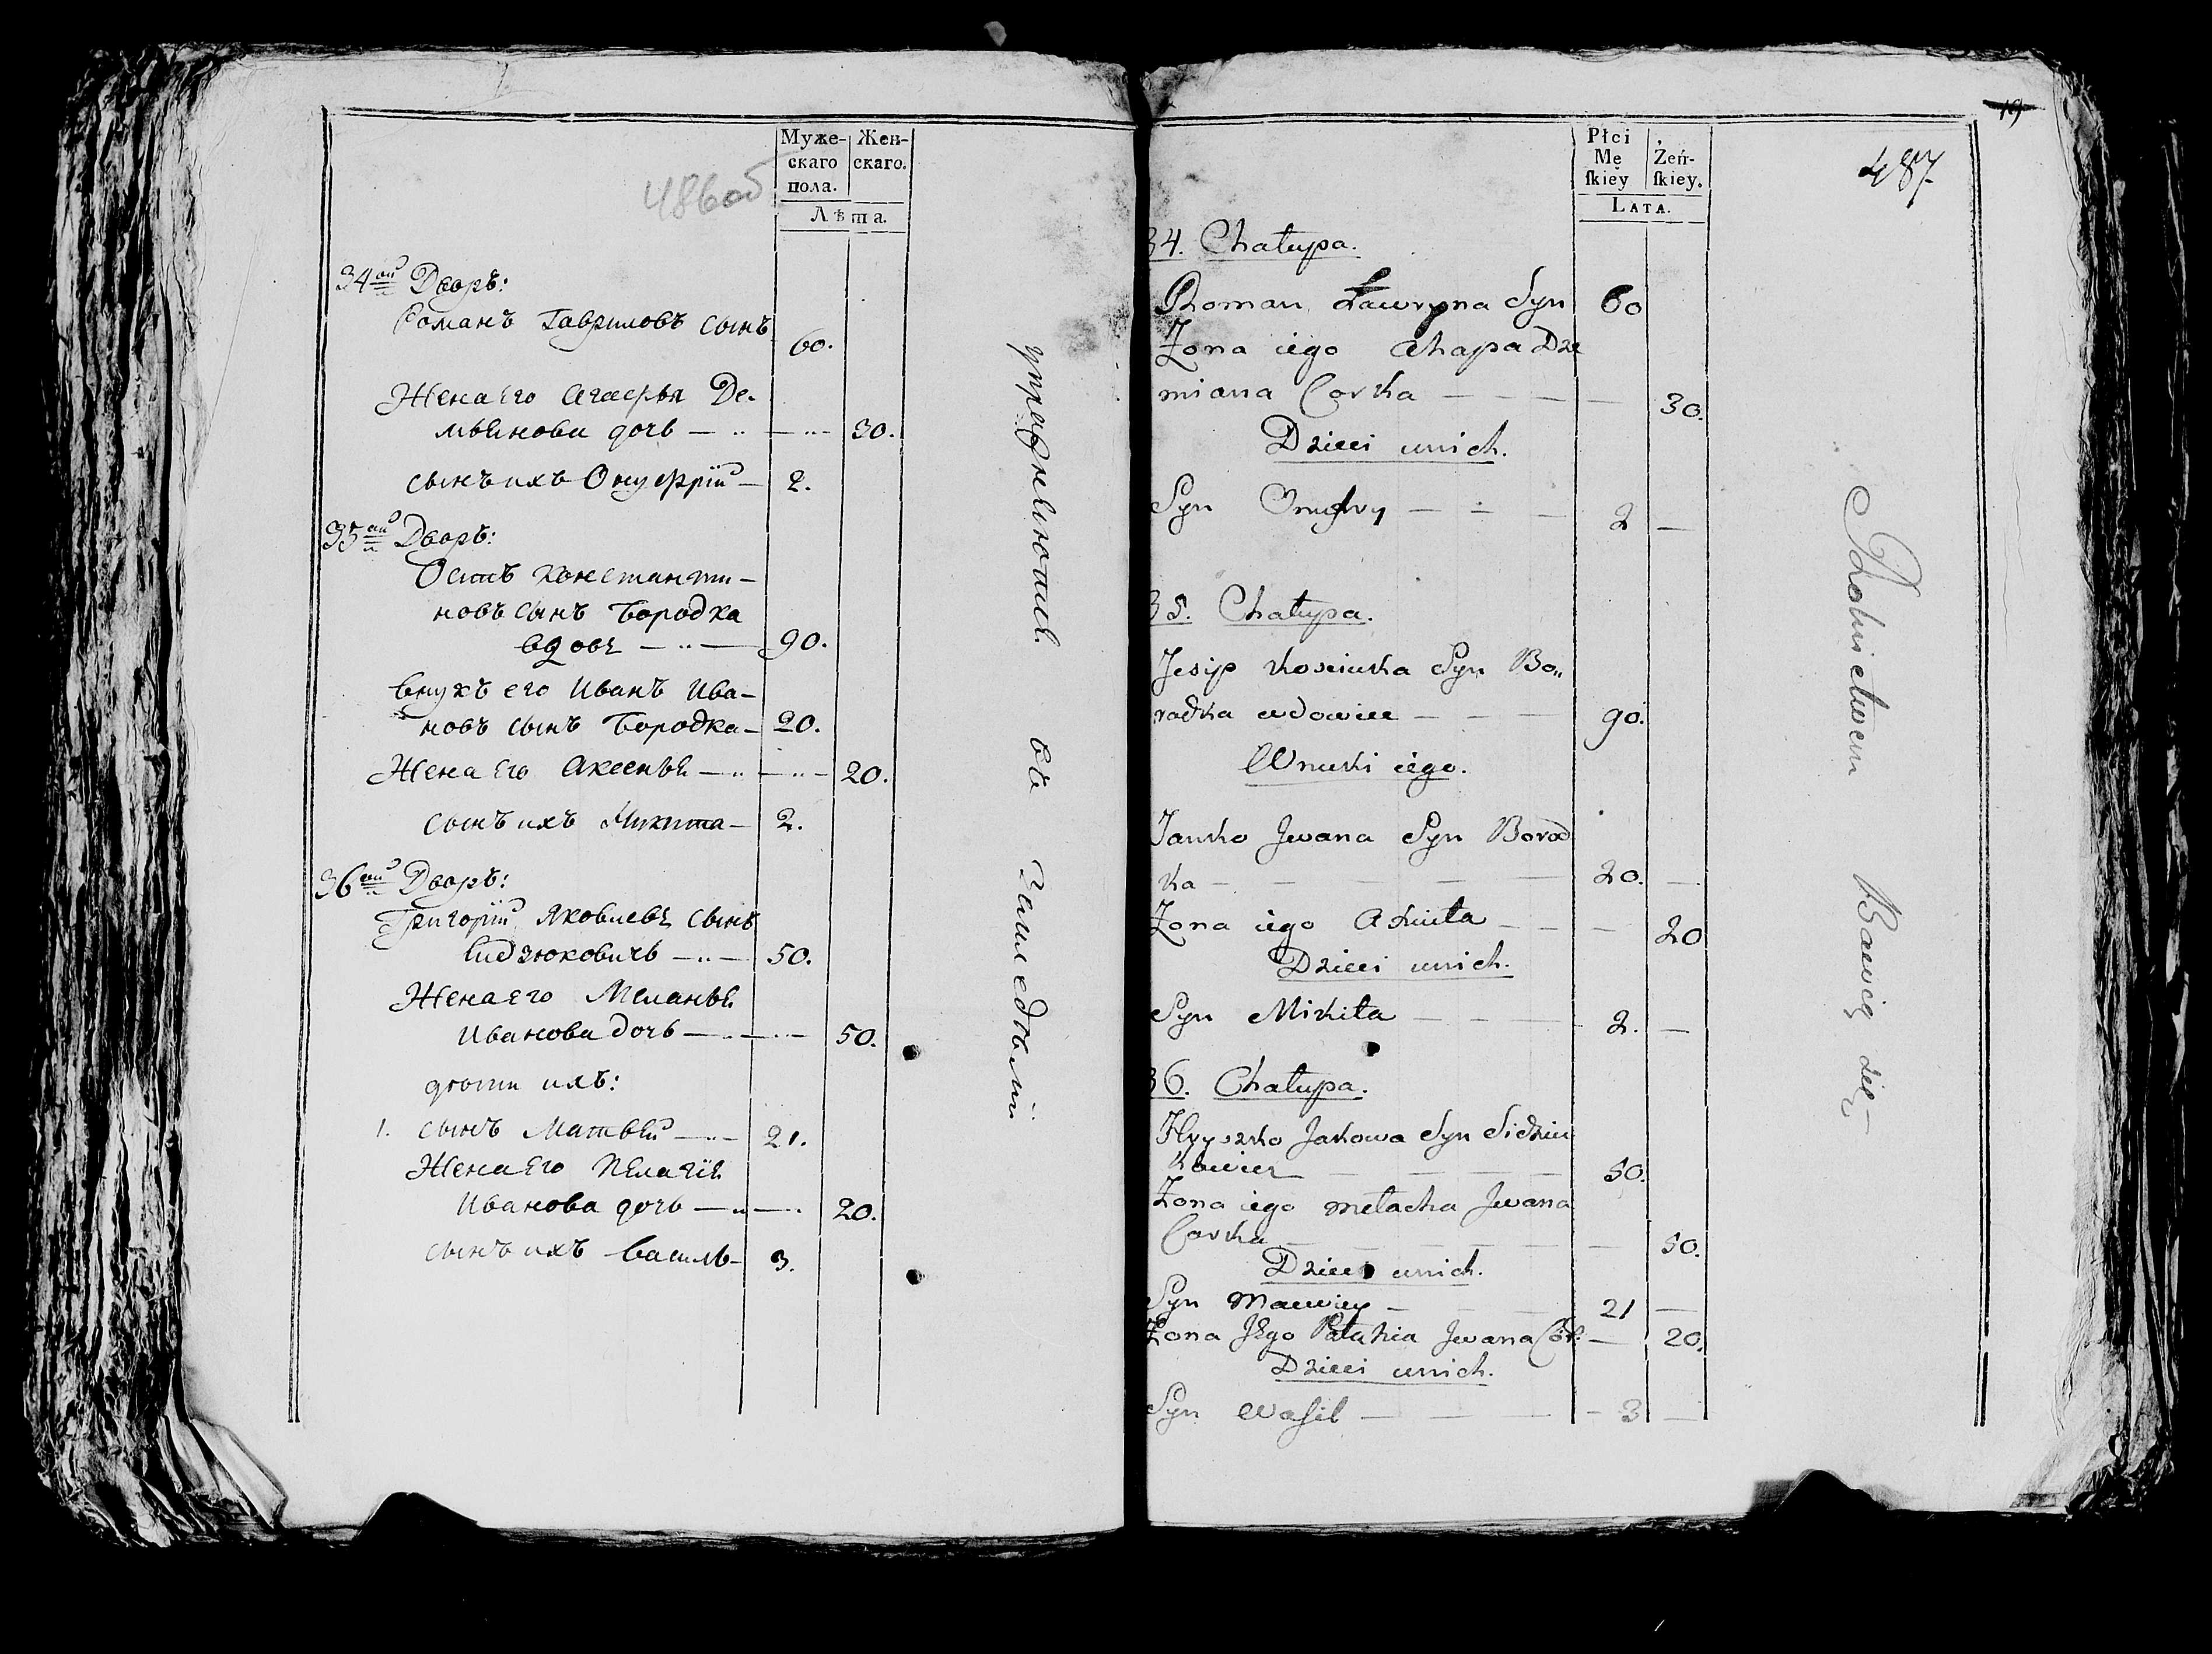 486об
Муже-
скаго
пола.
Жен-
скаго.
Лѣта.
34ый Дворъ:
Романъ Гавриловъ сынъ
60.
Жена его Агафья Де-
мьянова дочь — 30.
сынъ ихъ Онуфрій — 2.
35ый Дворъ:
Осипъ Константи-
новъ сынъ Бородка
вдовъ — 90.
внукъ его Иванъ Ива-
новъ сынъ Бородка — 20.
Жена его Аксенья — 20.
сынъ ихъ Микита — 2.
36ый Дворъ:
Григорій Яковлевъ сынъ
Сидзюковичь — 50.
Жена его Меланья
Иванова дочь — 50.
дѣти ихъ:
1. сынъ Матвѣй — 21.
Жена его Пелагія
Иванова дочь — 20.
сынъ ихъ Василь — 3.
упражняютъ въ Земледѣліи
19
487
Płci
Mę
ſkiey
Żeń-
ſkiey.
LATA.
34. Chałupa.
Roman Ławryna Syn 60
Żona iego Ahapa Dze
miana Corka — 30.
Dzieci unich.
Syn Onufry — 2 —
35. Chałupa.
Jesip Kosciuka Syn Bo„
radka wdowiec — 90.
Wnuki iego.
Janko Jwana Syn Borod
ka — 20. —
Żona iego Axiuta — 20
Dzieci unich.
Syn Mikita — 2. —
36. Chałupa.
Hryszko Jakowa Syn Sidziu
kowicz — 50.
Żona iego Małacha Jwana
Corka — 50.
Dzieci unich.
Syn Maciey — 21 —
Żona Jego Pałahia Jwana Cór. — 20.
Dzieci unich.
Syn Waſil — 3 —
Rolnictwem Bawią się —